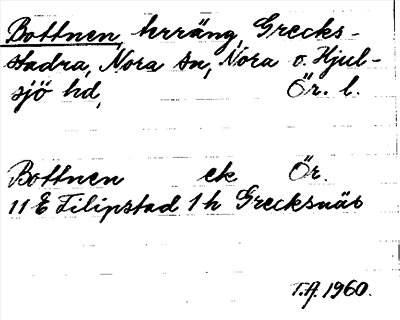 Bottnen, terräng, Grecks-
stadra, Nora sn, Nora o. Hjul-
sjö hd, Ör. l.
Bottnen ek Ör.
11 E Filipstad 1 h Grecksnäs
T.A. 1960.